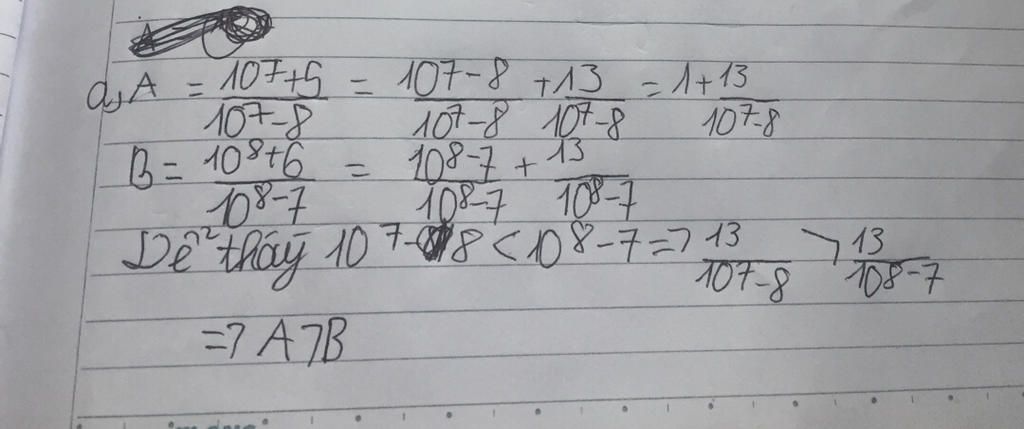 a, A = \frac{10^7+5}{10^7-8} = \frac{10^7-8}{10^7-8} + \frac{13}{10^7-8} = 1 + \frac{13}{10^7-8}
B = \frac{10^8+6}{10^8-7} = \frac{10^8-7}{10^8-7} + \frac{13}{10^8-7}
Dễ thấy 10^7-8 < 10^8-7 => \frac{13}{10^7-8} > \frac{13}{10^8-7}
=> A > B